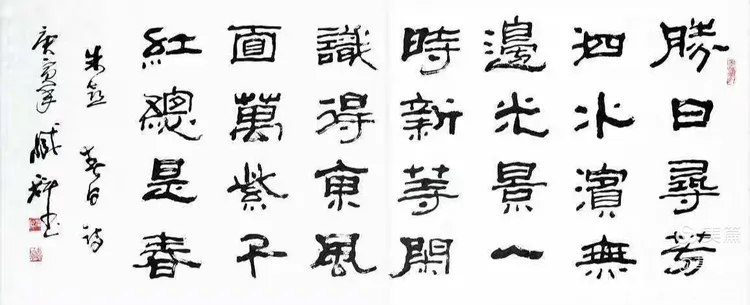 勝日尋芳
泗水濱無
邊光景一
時新等閑
識得東風
面萬紫千
紅總是春
朱熹 春日 詩
庚寅 书
美篇